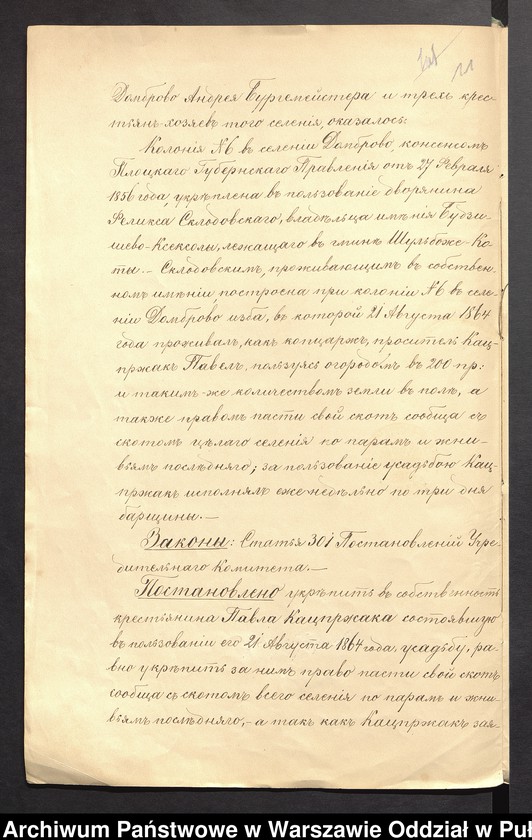 Домброво Андрея Бургемейстера и трехъ крес-
тьянъ хозяевъ того селенія, оказалось:
Колонія №6 въ селеніи Домброво, консенсомъ
Плоцкаго Губернскаго Правленія отъ 27 Февраля
1856 года, укрѣплена въ пользованіе дворянина
Феликса Склодовскаго, владѣльца имѣнія Будзи-
шево-Ксенсколы, лежащаго въ гминѣ Шульбоже-Ко-
ты. - Склодовскимъ, проживающимъ въ собствен-
номъ имѣніи, построена при колоніи №6 въ селе-
ніи Домброво, изба, въ которой 21 Августа 1864
года проживалъ, какъ копцаржъ, проситель Кац-
пржакъ Павелъ, пользуясь огородомъ въ 200 пр:
и такимъ-же количествомъ земли въ полѣ, а
также правомъ пасти свой скотъ сообща съ
скотомъ цѣлаго селенія по парамъ и жни-
вьямъ послѣдняго; за пользованіе усадьбою Кац-
пржакъ исполнялъ еженедѣльно по три дня
барщины. -
Законы: Статья 301 Постановленій Учре-
дительнаго Комитета. -
Постановлено укрѣпить въ собственность
крестьянина Павла Кацпржака состоявшую
въ пользованіи его 21 Августа 1864 года, усадьбу, ра-
вно укрѣпить за нимъ право пасти свой скотъ
сообща съ скотомъ всего селенія по парамъ и жни-
вьямъ послѣдняго, - а такъ какъ Кацпржакъ зая-
Archiwum Państwowe w Warszawie Oddział w Puł